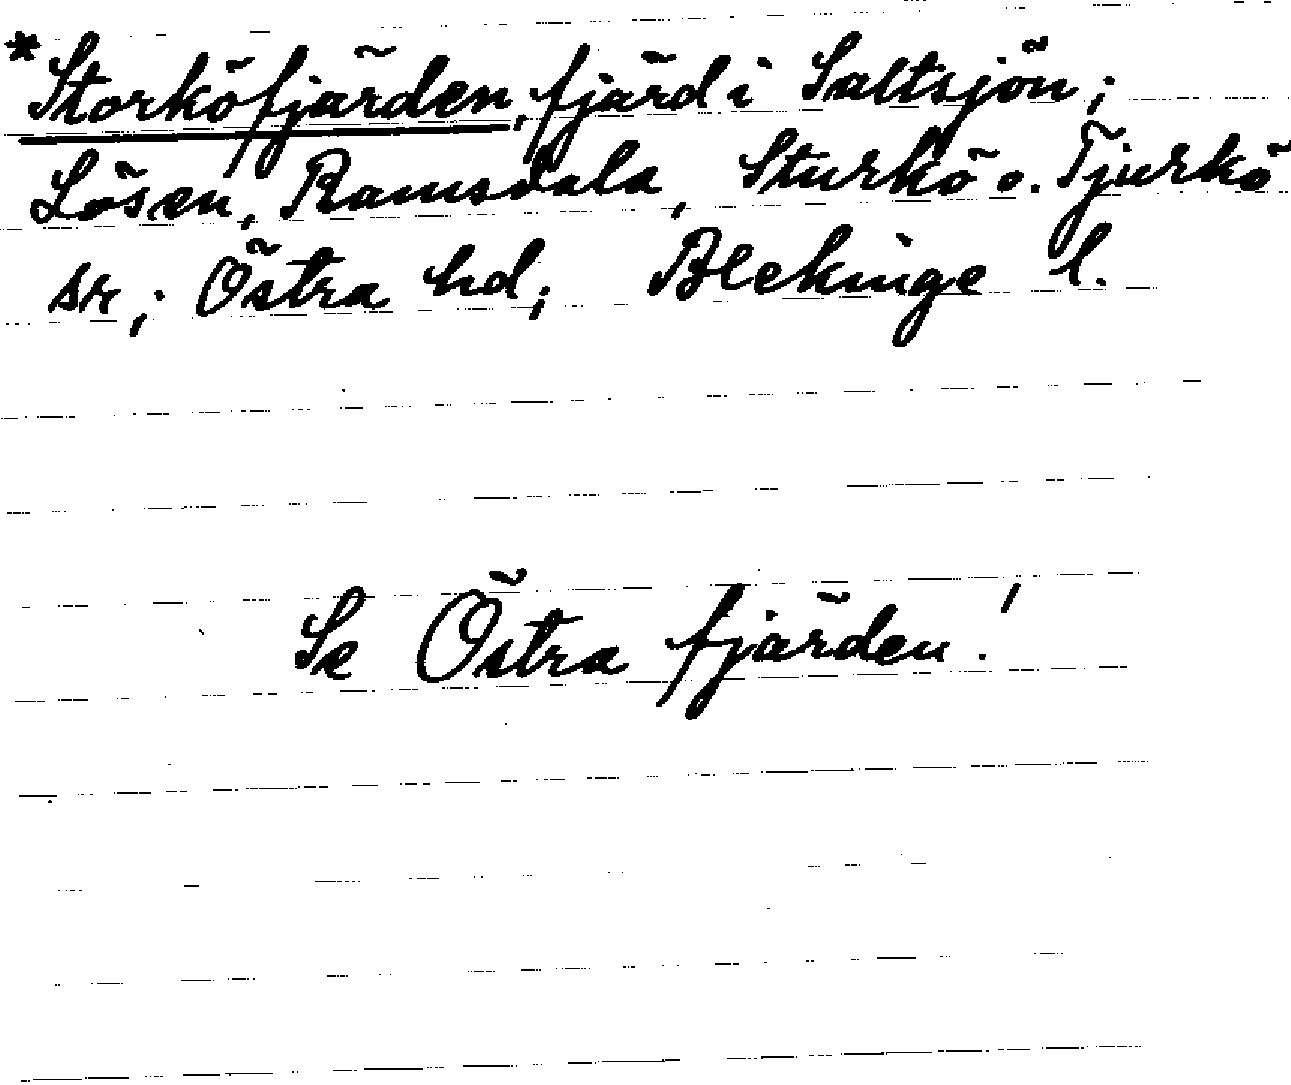 *Storköfjärden, fjärd i Saltsjön;
Lösen, Ramsdala, Sturkö o. Tjurkö
sr; Östra hd; Blekinge l.
Se Östra fjärden!